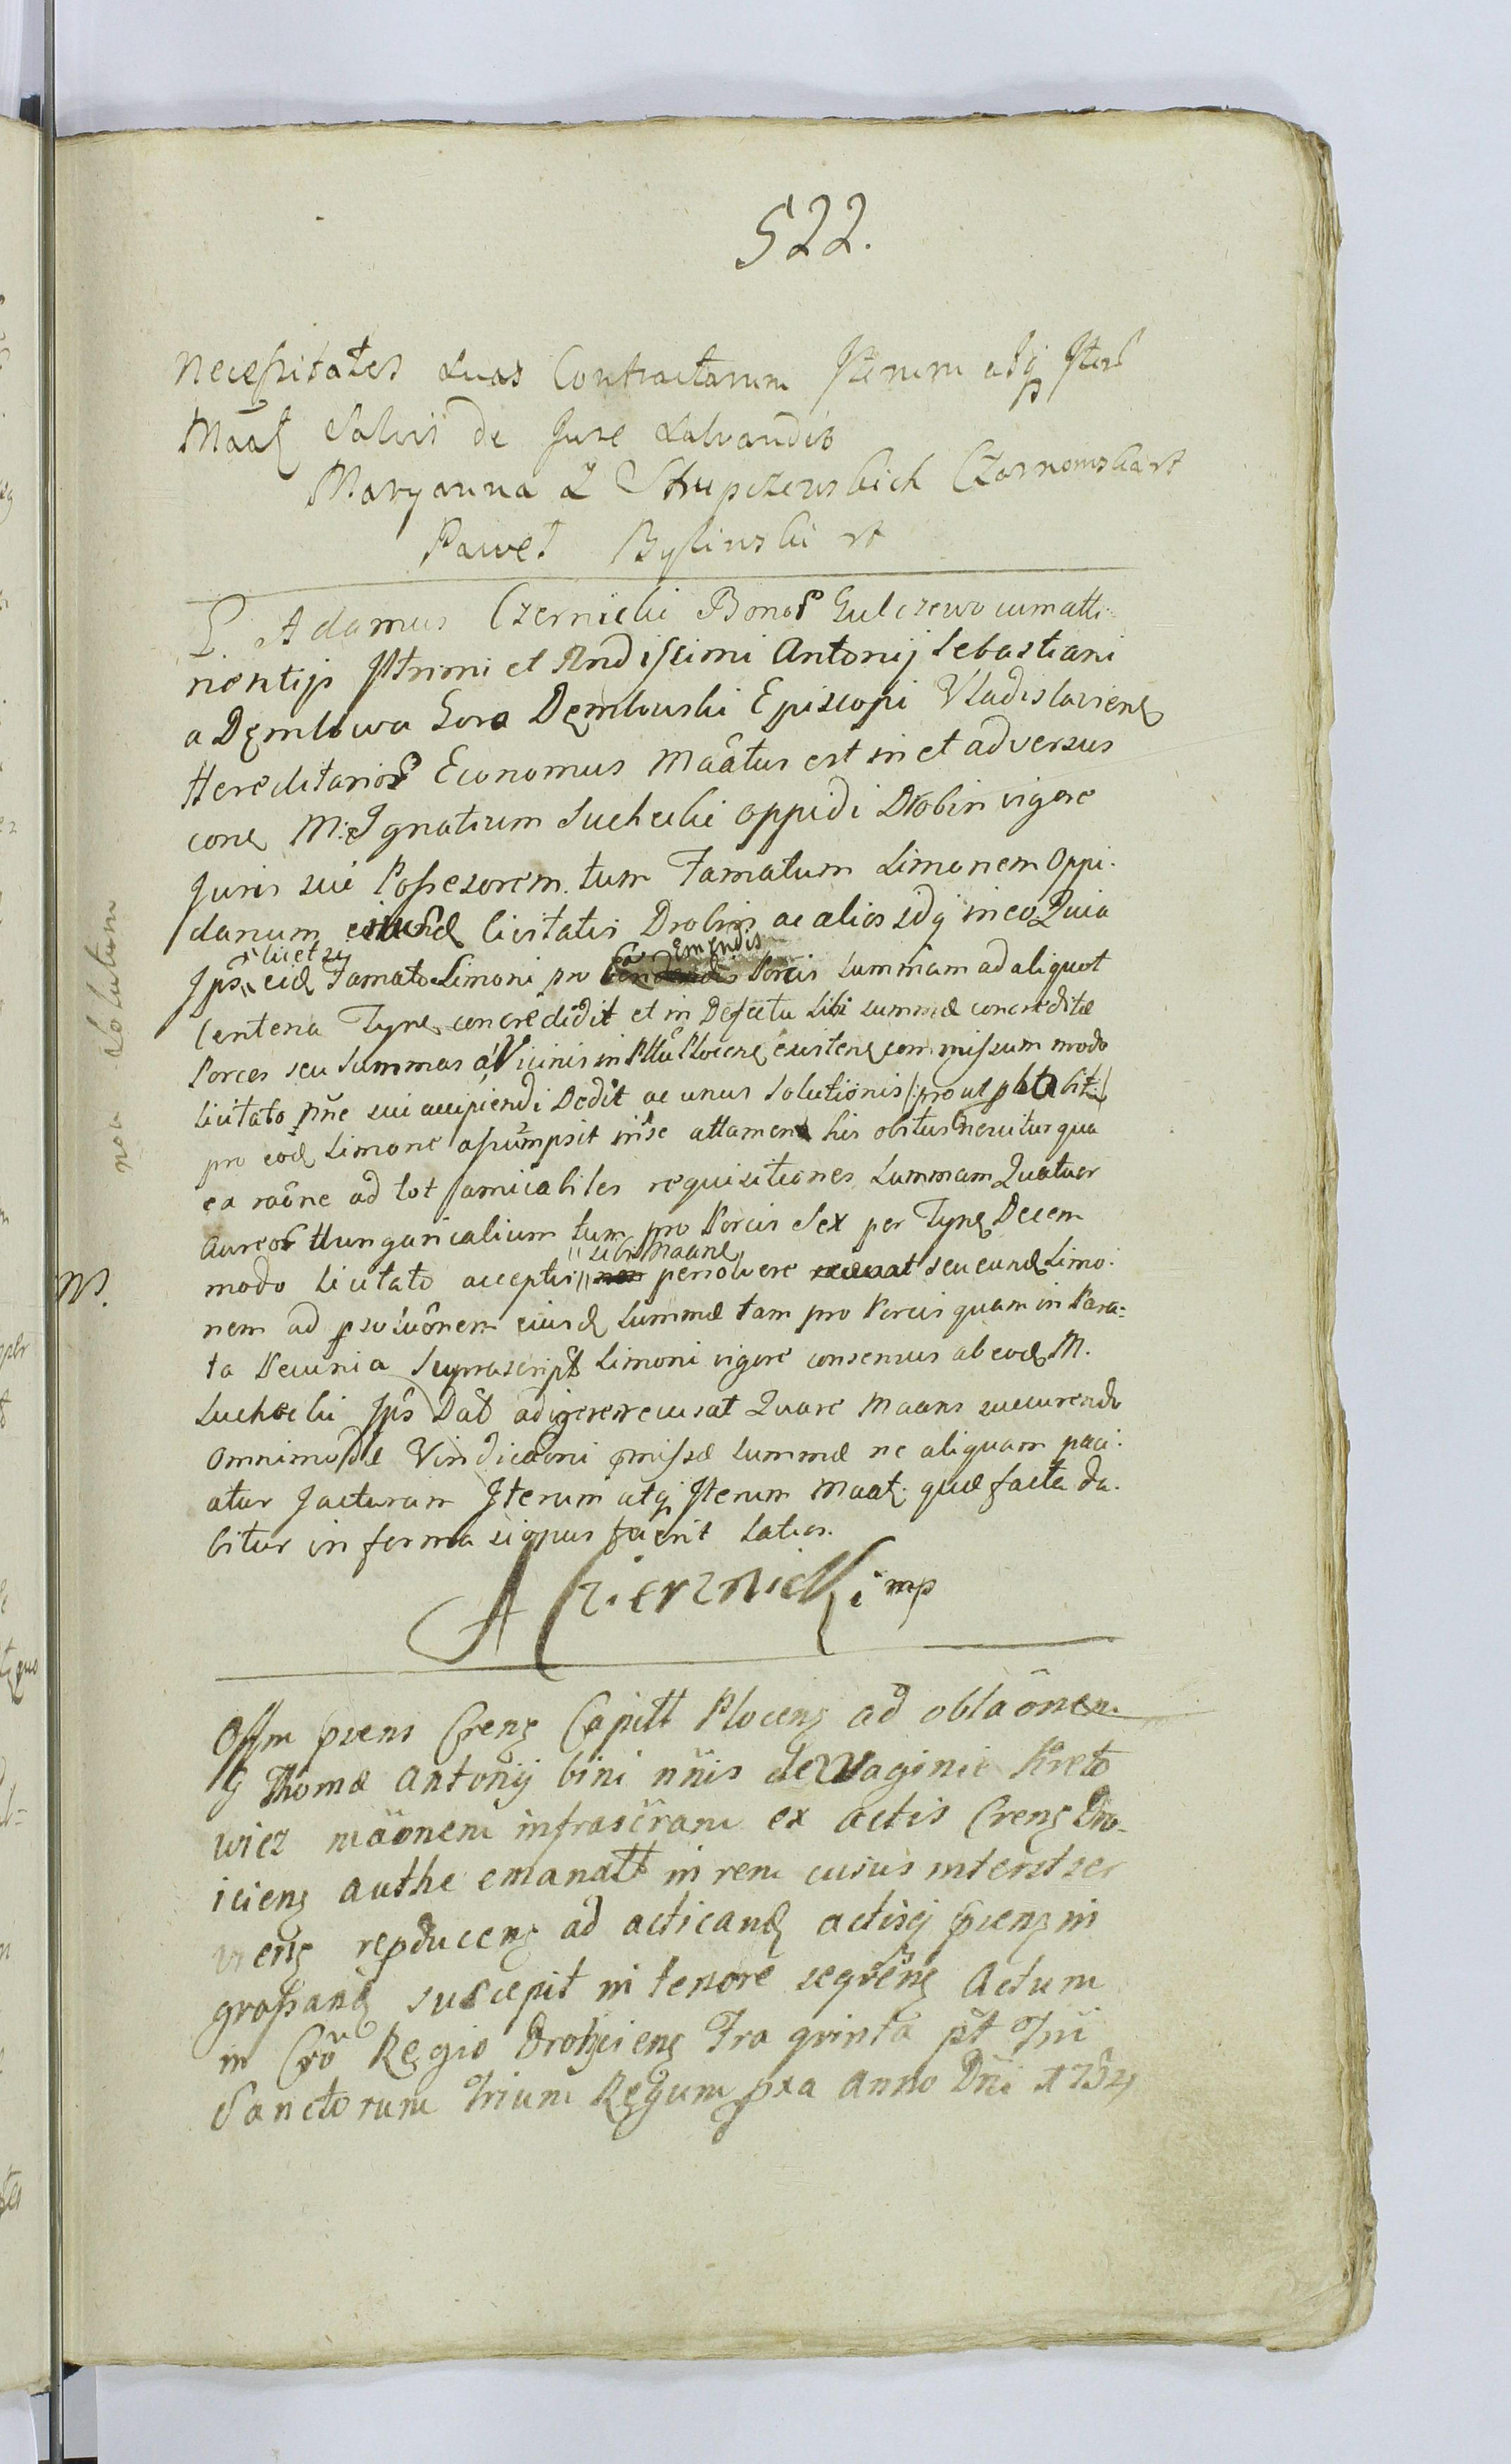 522.
Necessitates suas Contractarum Iterum atq Iter
Maał Salvis de Jure salvandis
Maryanna z Strupczewskich Czarnomska rt
Paweł Bylinski rt
G. Adamus Czernicki Bonor Gulczewo cum atti-
nentijs Illrimi et Rndissimi Antonij Sebastiani
a Dęmbowa Gora Dęmbowski Episcopi Vladislaviens
Hereditarior Economus Maatus est in et adversus
cone M. Ignatium Suchecki oppidi Drobin vigore
Juris sui Possesorem. tum Famatum Simonem Oppi-
danum eiusd Civitatis Drobin ac alios idq in eo Quia
Ips licet eid Famato Simoni pro Emendis Porcis summam ad aliquot
Centena Tynf concredidit et in Defectu sibi summæ concreditæ
Porcos seu summas a Vicinis in Pttu Plocens existens commissum modo
licitato pñe sui accipiendi Dedit ac unus solutionis /:prout ptbit:/
pro eod Simone assumpsit in se attamen his obitus qua
ea raône ad tot amicabiles requisitiones summam Quatuor
Aureor Hungaricalium tum pro Porcis Sex per Tynf Decem
modo licitato acceptis sibi Maane persolvere seu eund Simo-
nem ad psolvônem eiusd summæ tam pro Porcis quam in Para-
ta Pecunia suprascript Simoni vigore consensus ab eod M.
Suchecki Ips Dat adigere recusat Quare Maans succurendo
Omnimodæ Vindicaoni pmissæ summæ ne aliquam paci-
atur Jacturam Iterum atq Iterum Maat. quæ facta da-
bitur in forma si opus fuerit latior.
A Czierznicki mp
N.
non solutum
Offm psens Crens Capitt Plocens ad oblaônem
G Thomæ Antonij bini nñis de Waginie Kreto
wicz maônem infrascram ex actis Crens Dro-
iciens authe emanatt in rem cuius interst ser
viens repducens ad acticand actisq psens in
grossand suscepit in tenore seqrens Actum
in Cro Regio Drohiciens Fra quinta pt Fm
Sanctorum Trium Regum pxa Anno Dñi 1752